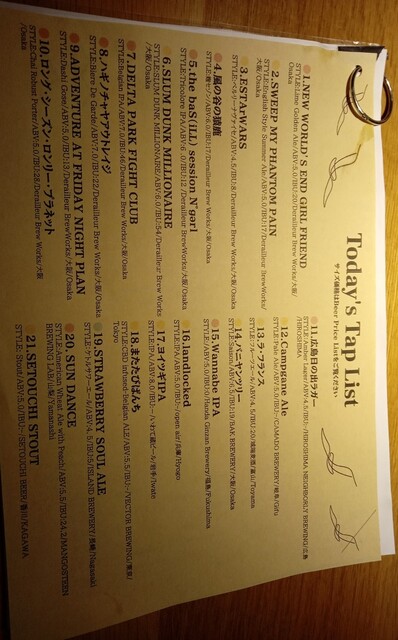 Today's Tap List
サイズ価格はBeer Price Listをご覧ください
1.NEW WORLD'S END GIRL FRIEND
STYLE:Lime Golden Ale/ABV:5.0/IBU:20/Derailleur Brew Works/大阪/
Osaka
2.SWEEP MY PHANTOM PAIN
STYLE:English Style Summer Ale/ABV:5.0/IBU:17/Derailleur Brew Works/
大阪/Osaka
3.ESTArWARS
STYLE:ベルリーナヴァイセ/ABV:4.5/IBU:8/Derailleur Brew Works/大阪/Osaka
4.風の谷の
IBU:17/Derailleur Brew Works/大阪/Osaka
5.the baS(ILL) session N'gorl
STYLE:Tricolore IPA/ABV:6.0/IBU:12/Derailleur Brew Works/大阪/Osaka
6.SLUM DUNK MILLIONAIRE
STYLE:SLUM DUNK MILLIONAIRE/ABV:6.0/IBU:54/Derailleur Brew Works
/大阪/Osaka
7.DELTA PARK FIGHT CLUB
STYLE:Belgian IPA/ABV:7.0/IBU:46/Derailleur Brew Works/大阪/Osaka
8.ハギノチャヤウトレイジ
STYLE:Biere De Garde/ABV:7.0/IBU:22/Derailleur Brew Works/大阪/Osaka
9.ADVENTURE AT FRIDAY NIGHT PLAN
STYLE:Dashi Gose/ABV:5.0/IBU:13/Derailleur BrewWorks/大阪/Osaka
10.ロング・シーズン・ロンリー・プラネット
STYLE:Chai Robust Porter/ABV:5.0/IBU:28/Derailleur BrewWorks/大阪
/Osaka
11.広島日の出ラガー
STYLE:Amber Lager/ABV:4.5/IBU:-/HIROSHIMA NEIGHBORLY BREWING/広島
/HIROSHIMA
12.Campagne Ale
STYLE:Pale Ale/ABV:5.0/IBU:-/CAMADO BREWERY/岐阜/Gifu
13.ラ・フランス
/富山/Toyama
14.バニヤンツリー
STYLE:Saison/ABV:6.0/IBU:19/BAK BREWERY/大阪/Osaka
15.Wannabe IPA
STYLE:IPA/ABV:5.0/IBU:50/Honda Ginzan Brewery/福島/Fukushima
16.landlocked
STYLE:IPA/ABV:5.5/IBU:-/open air/兵庫/Hyogo
17.ヨイツギIPA
STYLE:IPA/ABV:8.0/IBU:-/いわて蔵ビール/岩手/Iwate
18.またたびぱんち
STYLE:CBD infused-Belgian ALE/ABV:5.5/IBU:-/VECTOR BREWING/東京/
Tokyo
19.STRAWBERRY SOUL ALE
STYLE:ケトルサワーエール/ABV:4.5/IBU:5/ISLAND BREWERY/長崎/Nagasaki
20. SUN DANCE
STYLE:American Wheat Ale with Peach/ABV:5.5/IBU:24.2/MANGOSTEEN
BREWING LAB/山梨/Yamanashi
21.SETOUCHI STOUT
STYLE: Stout/ABV:5.0/IBU:-/SETOUCHI BEER/香川/KAGAWA